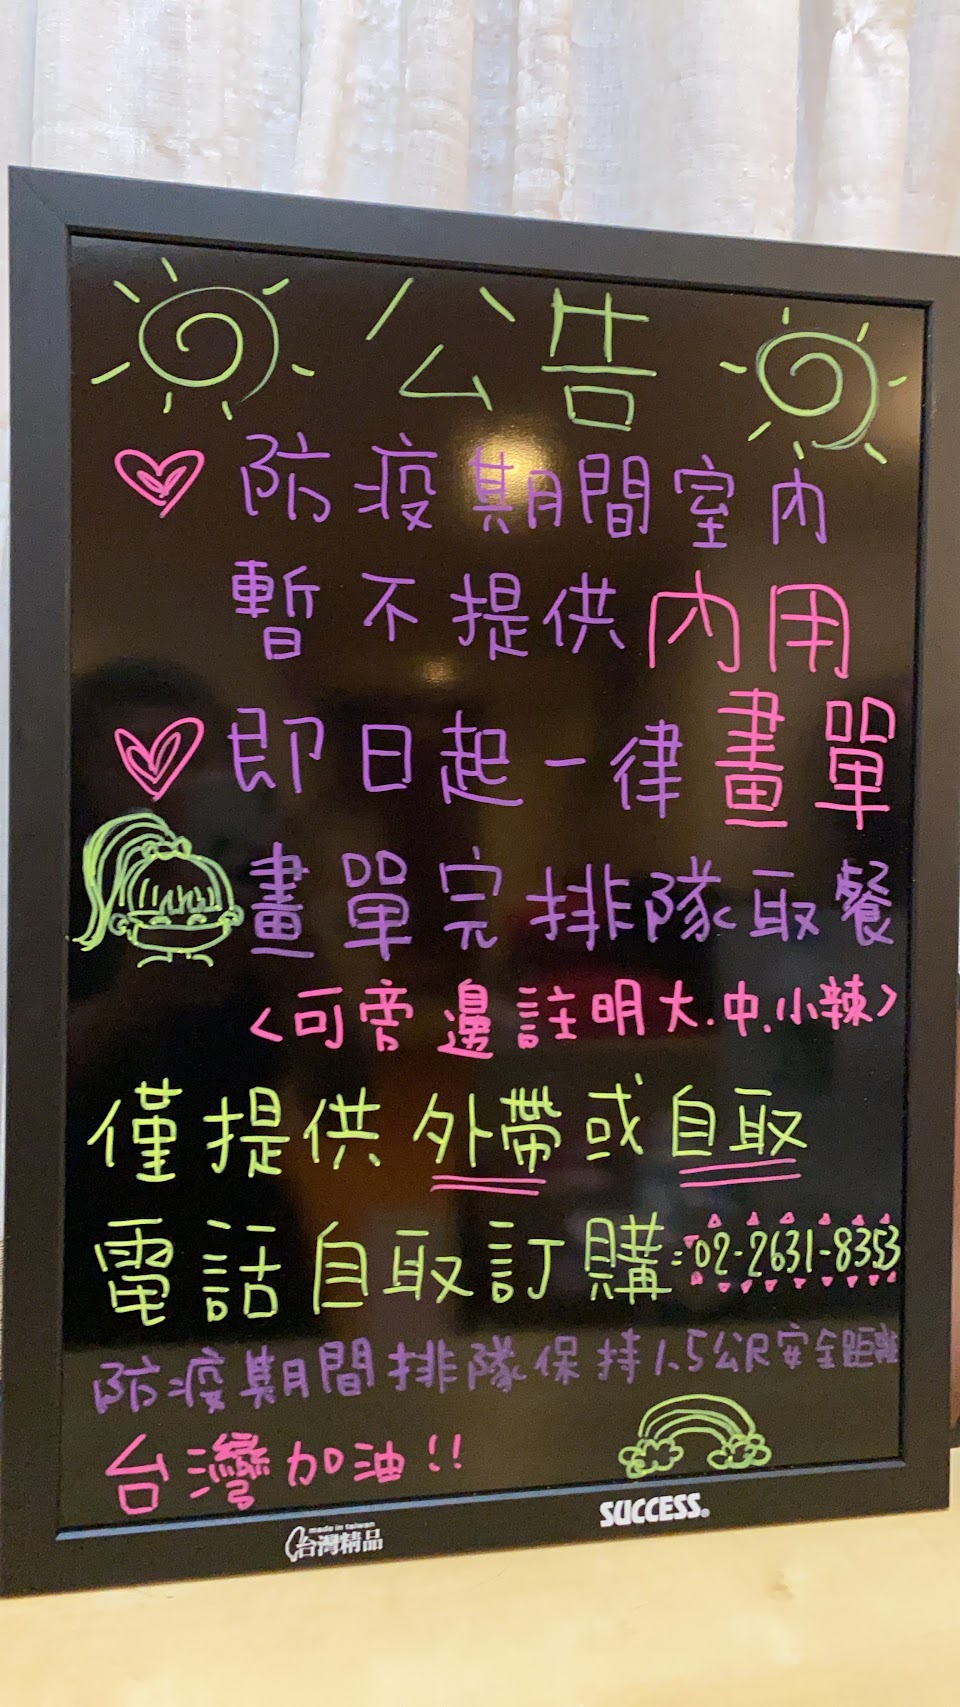 公告
防疫期間室內
暫不提供內用
即日起一律畫單
畫單完排隊取餐
<可旁邊註明大.中.小辣>
僅提供外帶或自取
電話自取訂購:02-2631-8353
防疫期間排隊保持1.5公尺安全距離
台灣加油!!
made in taiwan
台灣精品
SUCCESS®